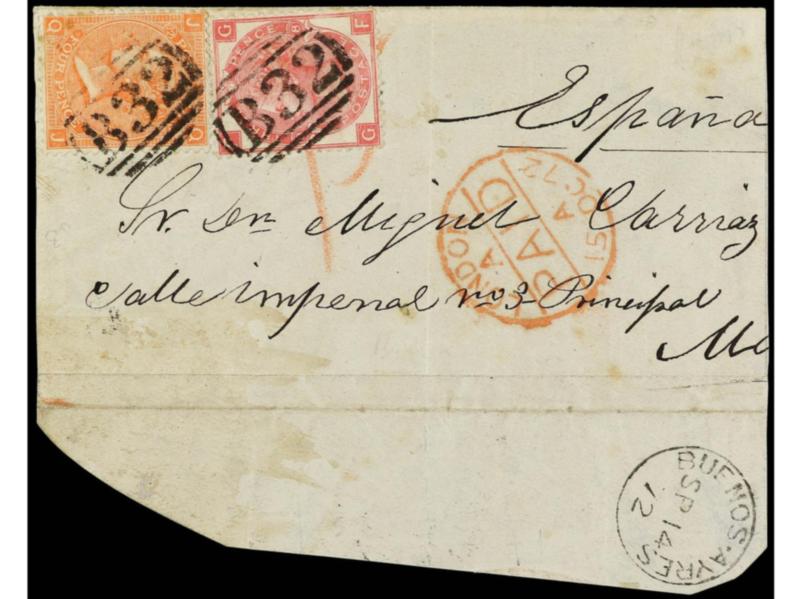 J Q
FOUR PENC
J Q
B32
G F
PENCE
POST
G
B32
España
LONDON
A
PAID
15 OC 72
A
Sr. Dn Miguel Carriaz
Calle imperial no 3 Principal
BUENOS-AYRES
SP 14
72